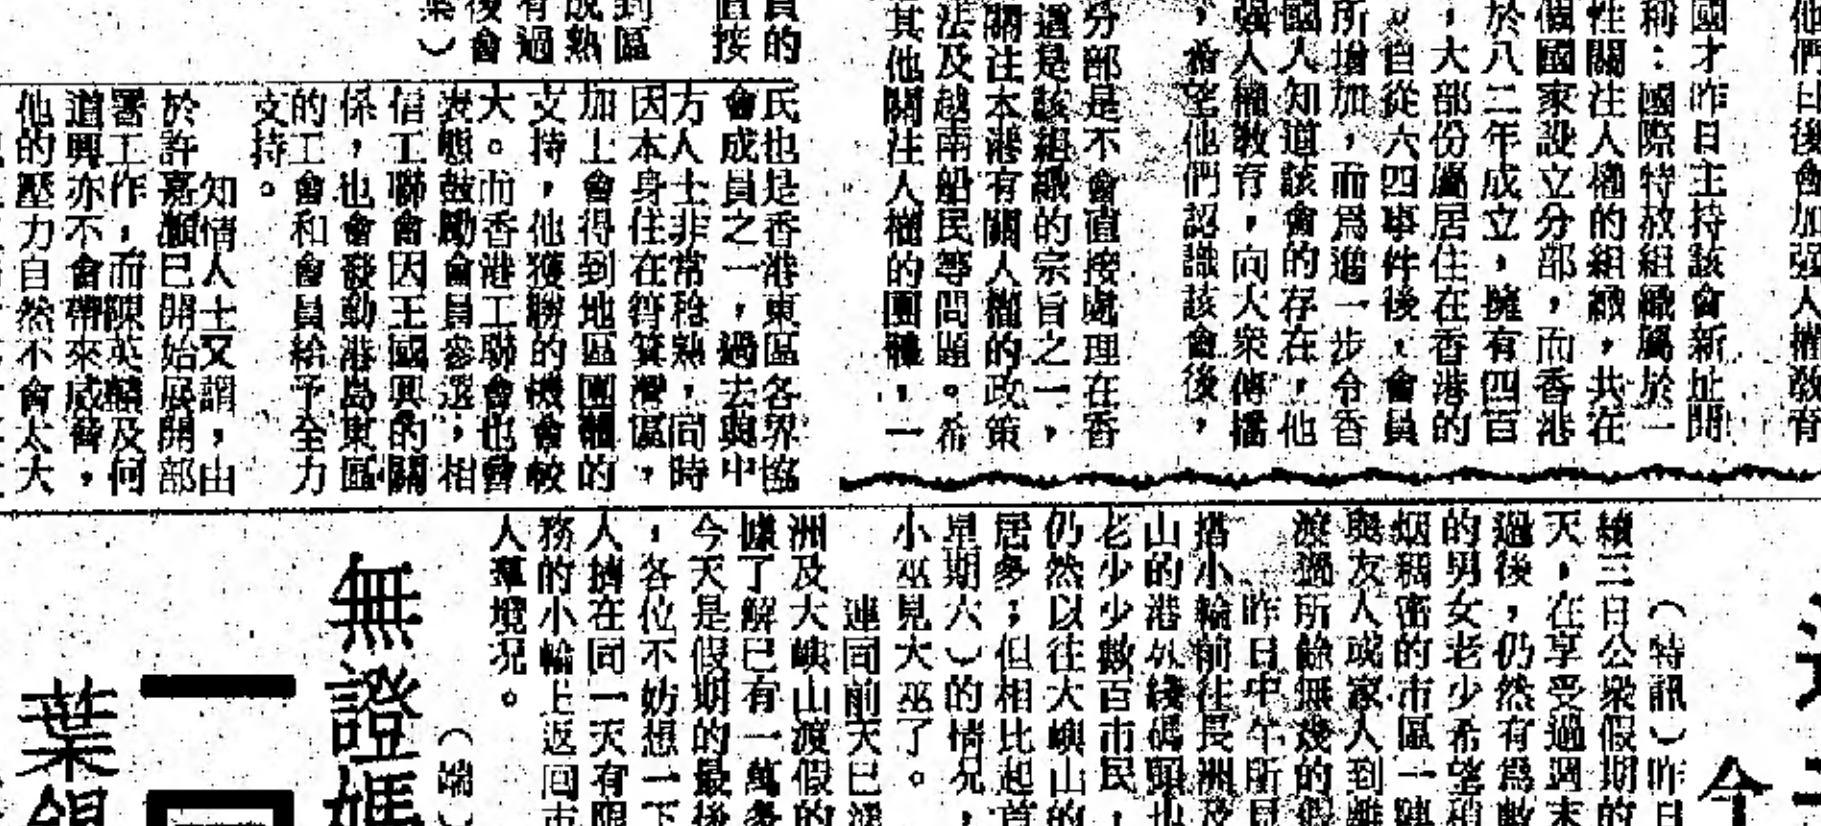 他們日後會加强人權敎育
國才昨日主持該會新址開
稱：國際特赦組織屬於一
性關注人權的組織，共在
個國家設立分部，而香港
於八二年成立，擁有四百
，大部份屬居住在香港的
自從六四事件後，會員
所增加，而爲進一步令香
國人知道該會的存在，他
强人權敎育，向大衆傳播
，希望他們認識該會後，
分部是不會直接處理在香
這是該組織的宗旨之一，
關注本港有關人權的政策
法及越南船民等問題。希
其他關注人權的團體，一
員的
直接
到區
成熟
有過
後會
葉）
民也是香港東區各界協
會成員之一，過去與中
方人士非常稔熟，同時
因本身住在筲箕灣區，
加上會得到地區團體的
支持，他獲勝的機會較
大。而香港工聯會也曾
表態鼓勵會員參選，相
信工聯會因王國興的關
係，也會發動港島東區
的工會和會員給予全力
支持。
知情人士又謂，由
於許嘉灝已開始展開部
署工作，而陳英麟及何
道興亦不會帶來威脅，
他的壓力自然不會太大
今
（特訊）昨日
續三日公衆假期的
天，在享受過週末
過後，仍然有爲數
的男女老少希望稍
烟稠密的市區一
與友人或家人到離
渡過所餘無幾的假
昨日中午所見
搭小輪前往長洲及
山的港外綫碼頭也
老少少數百市民，
仍然以往大嶼山的
居多；但相比起首
早期六）的情況，
小巫見大巫了。
連同前天已
洲及大嶼山渡假的
據了解已有一萬多
今天是假期的最後
，各位不妨想一下
人擠在同一天有限
務的小輪上返回市
人羣境況。
（端）
無證媽
二
葉錫